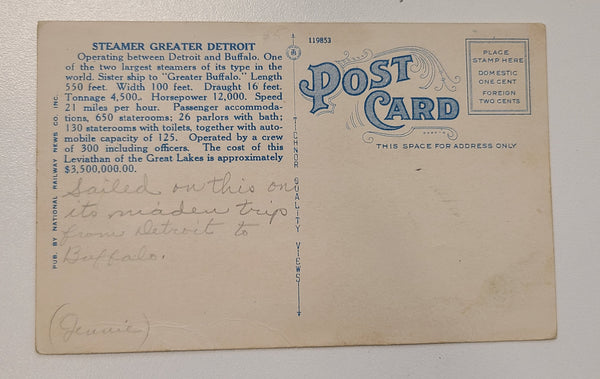 STEAMER GREATER DETROIT
Operating between Detroit and Buffalo. One
of the two largest steamers of its type in the
world. Sister ship to "Greater Buffalo." Length
550 feet. Width 100 feet. Draught 16 feet.
Tonnage 4,500. Horsepower 12,000. Speed
21 miles per hour. Passenger accommoda-
tions, 650 staterooms; 26 parlors with bath;
130 staterooms with toilets, together with auto-
mobile capacity of 125. Operated by a crew
of 300 including officers. The cost of this
Leviathan of the Great Lakes is approximately
$3,500,000.00.
Sailed on this on
its maiden trip
from Detroit to
Buffalo.
(Jennie)
PUB. BY NATIONAL RAILWAY NEWS CO. INC.
TICHNOR QUALITY VIEWS
119853
POST
CARD
THIS SPACE FOR ADDRESS ONLY
PLACE
STAMP HERE
DOMESTIC
ONE CENT
FOREIGN
TWO CENTS